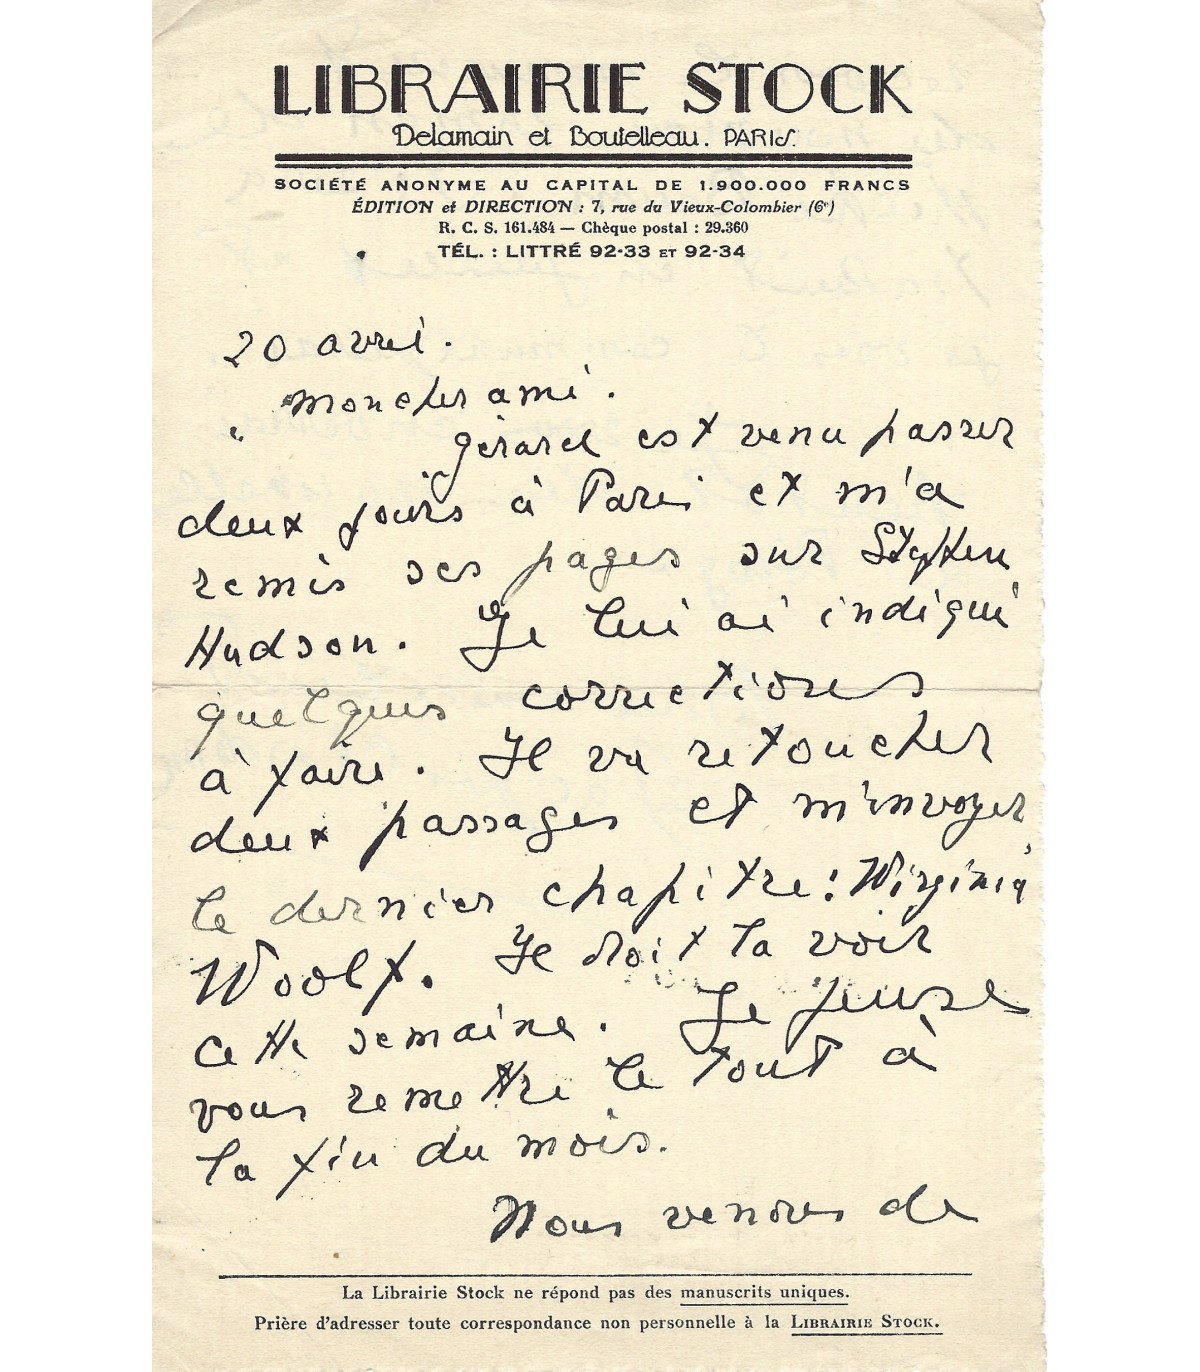 LIBRAIRIE STOCK
Delamain et Boutelleau. PARIS.
SOCIÉTÉ ANONYME AU CAPITAL DE 1.900.000 FRANCS
ÉDITION et DIRECTION : 7, rue du Vieux-Colombier (6e)
R. C. S. 161.484 — Chèque postal : 29.360
TÉL. : LITTRÉ 92-33 ET 92-34
20 avril.
Mon cher ami.
Gérard est venu passer
deux jours à Paris et m'a
remis ses pages sur Stephen
Hudson. Je lui ai indiqué
quelques corrections
à faire. Il va retoucher
deux passages et m'envoyer
le dernier chapitre : Virginia
Woolf. Il doit la voir
cette semaine. Je pense
vous remettre le tout à
la fin du mois.
Nous venons de
La Librairie Stock ne répond pas des manuscrits uniques.
Prière d'adresser toute correspondance non personnelle à la LIBRAIRIE STOCK.